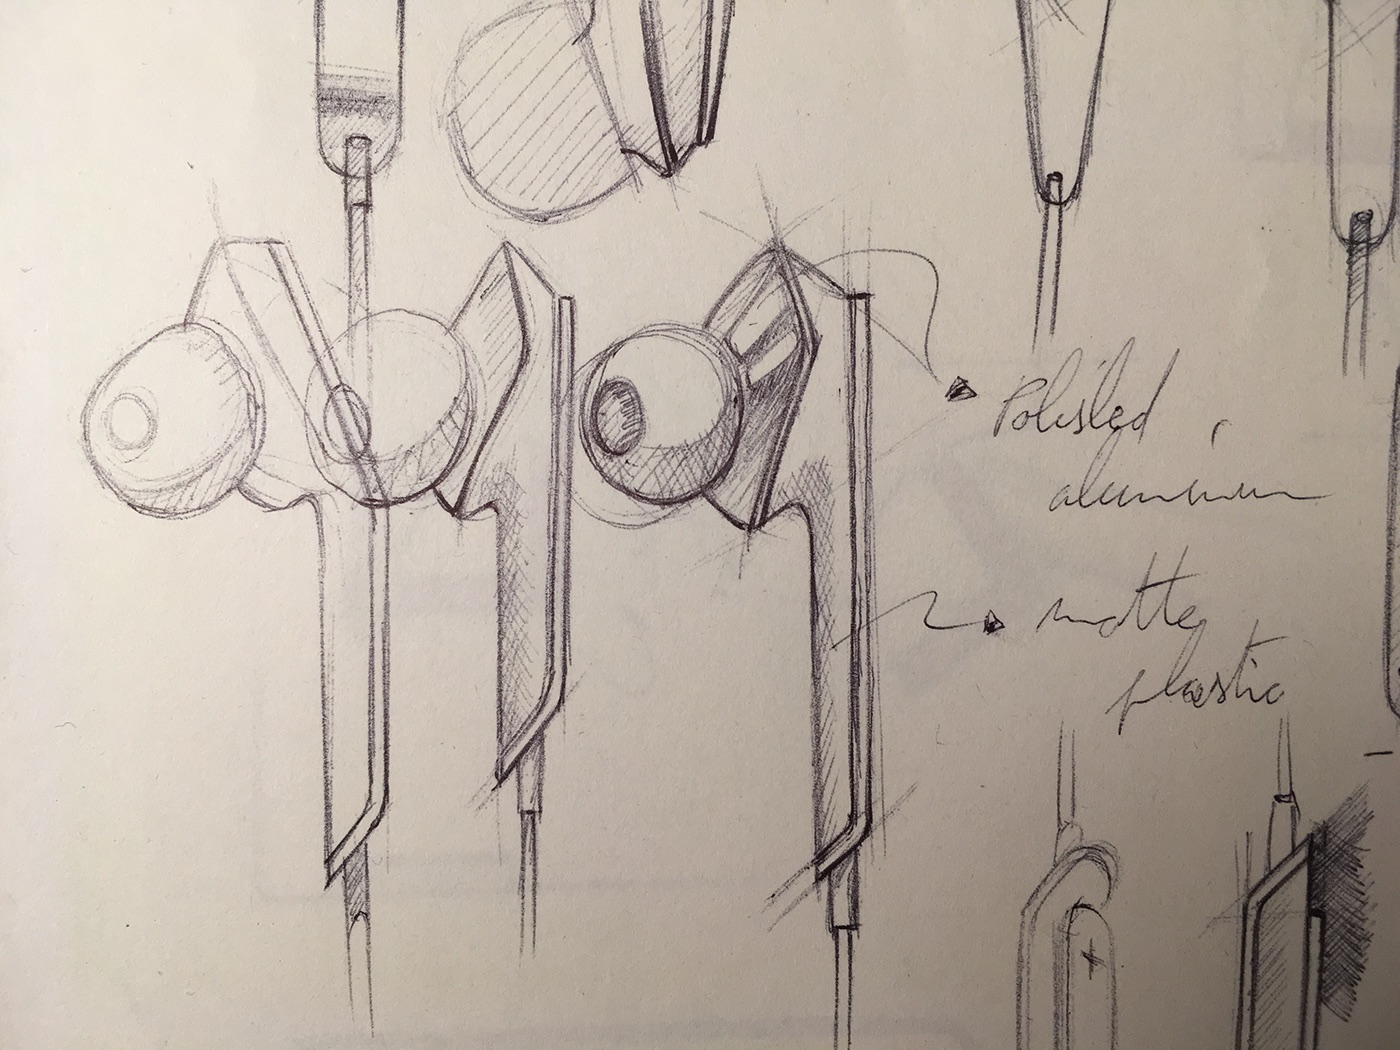 Polished
aluminium
matte
plastic